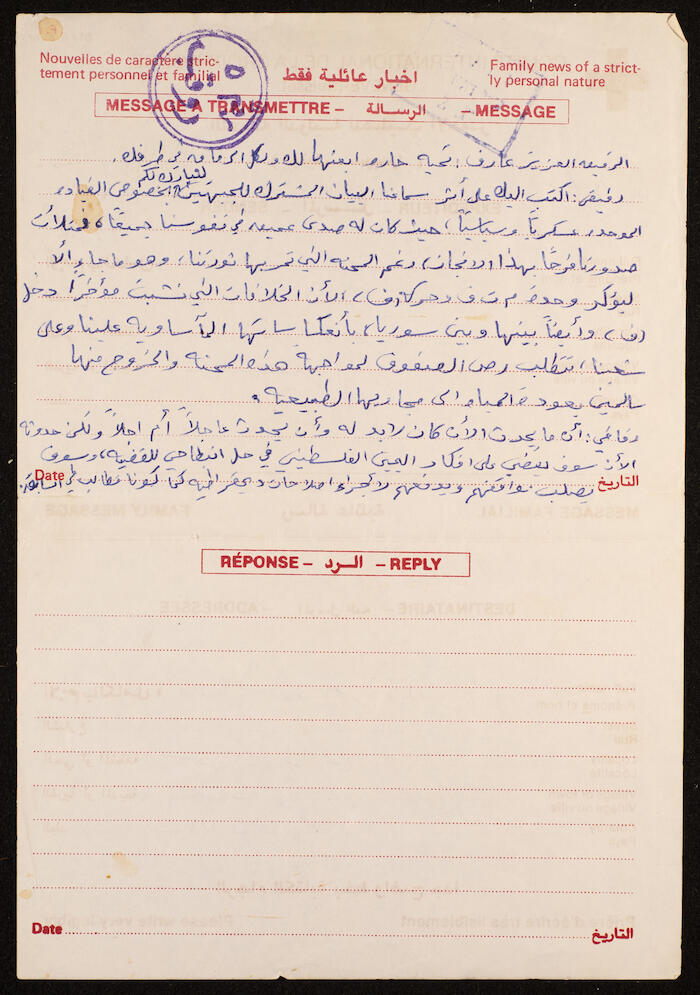 Nouvelles de caractère stric-
tement personnel et familial
اخبار عائلية فقط
Family news of a strict-
ly personal nature
MESSAGE A TRANSMETTRE – الرسالة – MESSAGE
الرفيق العزيز عارف، تحية حارة ابعثها لك ولكل الرفاق في طرفك.
لنبارك لكم
رفيقي: اكتب اليك على أثر سماعنا البيان المشترك للجبهتين بخصوص القيادة
الموحدة عسكرياً وسياسياً، حيث كان له صدى عميق في نفوسنا جميعاً، وملأت
صدورنا فرحًا بهذا الانجاز، رغم المحنة التي تمر بها ثورتنا، وهو ما جاء إلا
ليؤكد وحدة م ت ف وحركة (ف)، الأن الخلافات التي نشبت مؤخراً دخل
(ف)، وأيضاً بينها وبين سوريا، بأنعكاساتها المآساوية علينا وعلى
شعبنا، تتطلب رص الصفوف لمواجهة هذه المحنة والخروج منها
سالمين بعودة المياه الى مجاريها الطبيعية.
رفاقي: أن ما يحدث الأن كان لابد له وأن يحدث عاجلاً أم اجلاً ولكن حدوثه
الأن سوف يقضي على افكار اليمين الفلسطيني في حل انبطاحي للقضية، وسوف
Date يصلب مواقفهم ويدفعهم لأجراء اصلاحات ديمقراطية كما كنا نطالب في السابق. التاريخ
RÉPONSE – الرد – REPLY
Date التاريخ